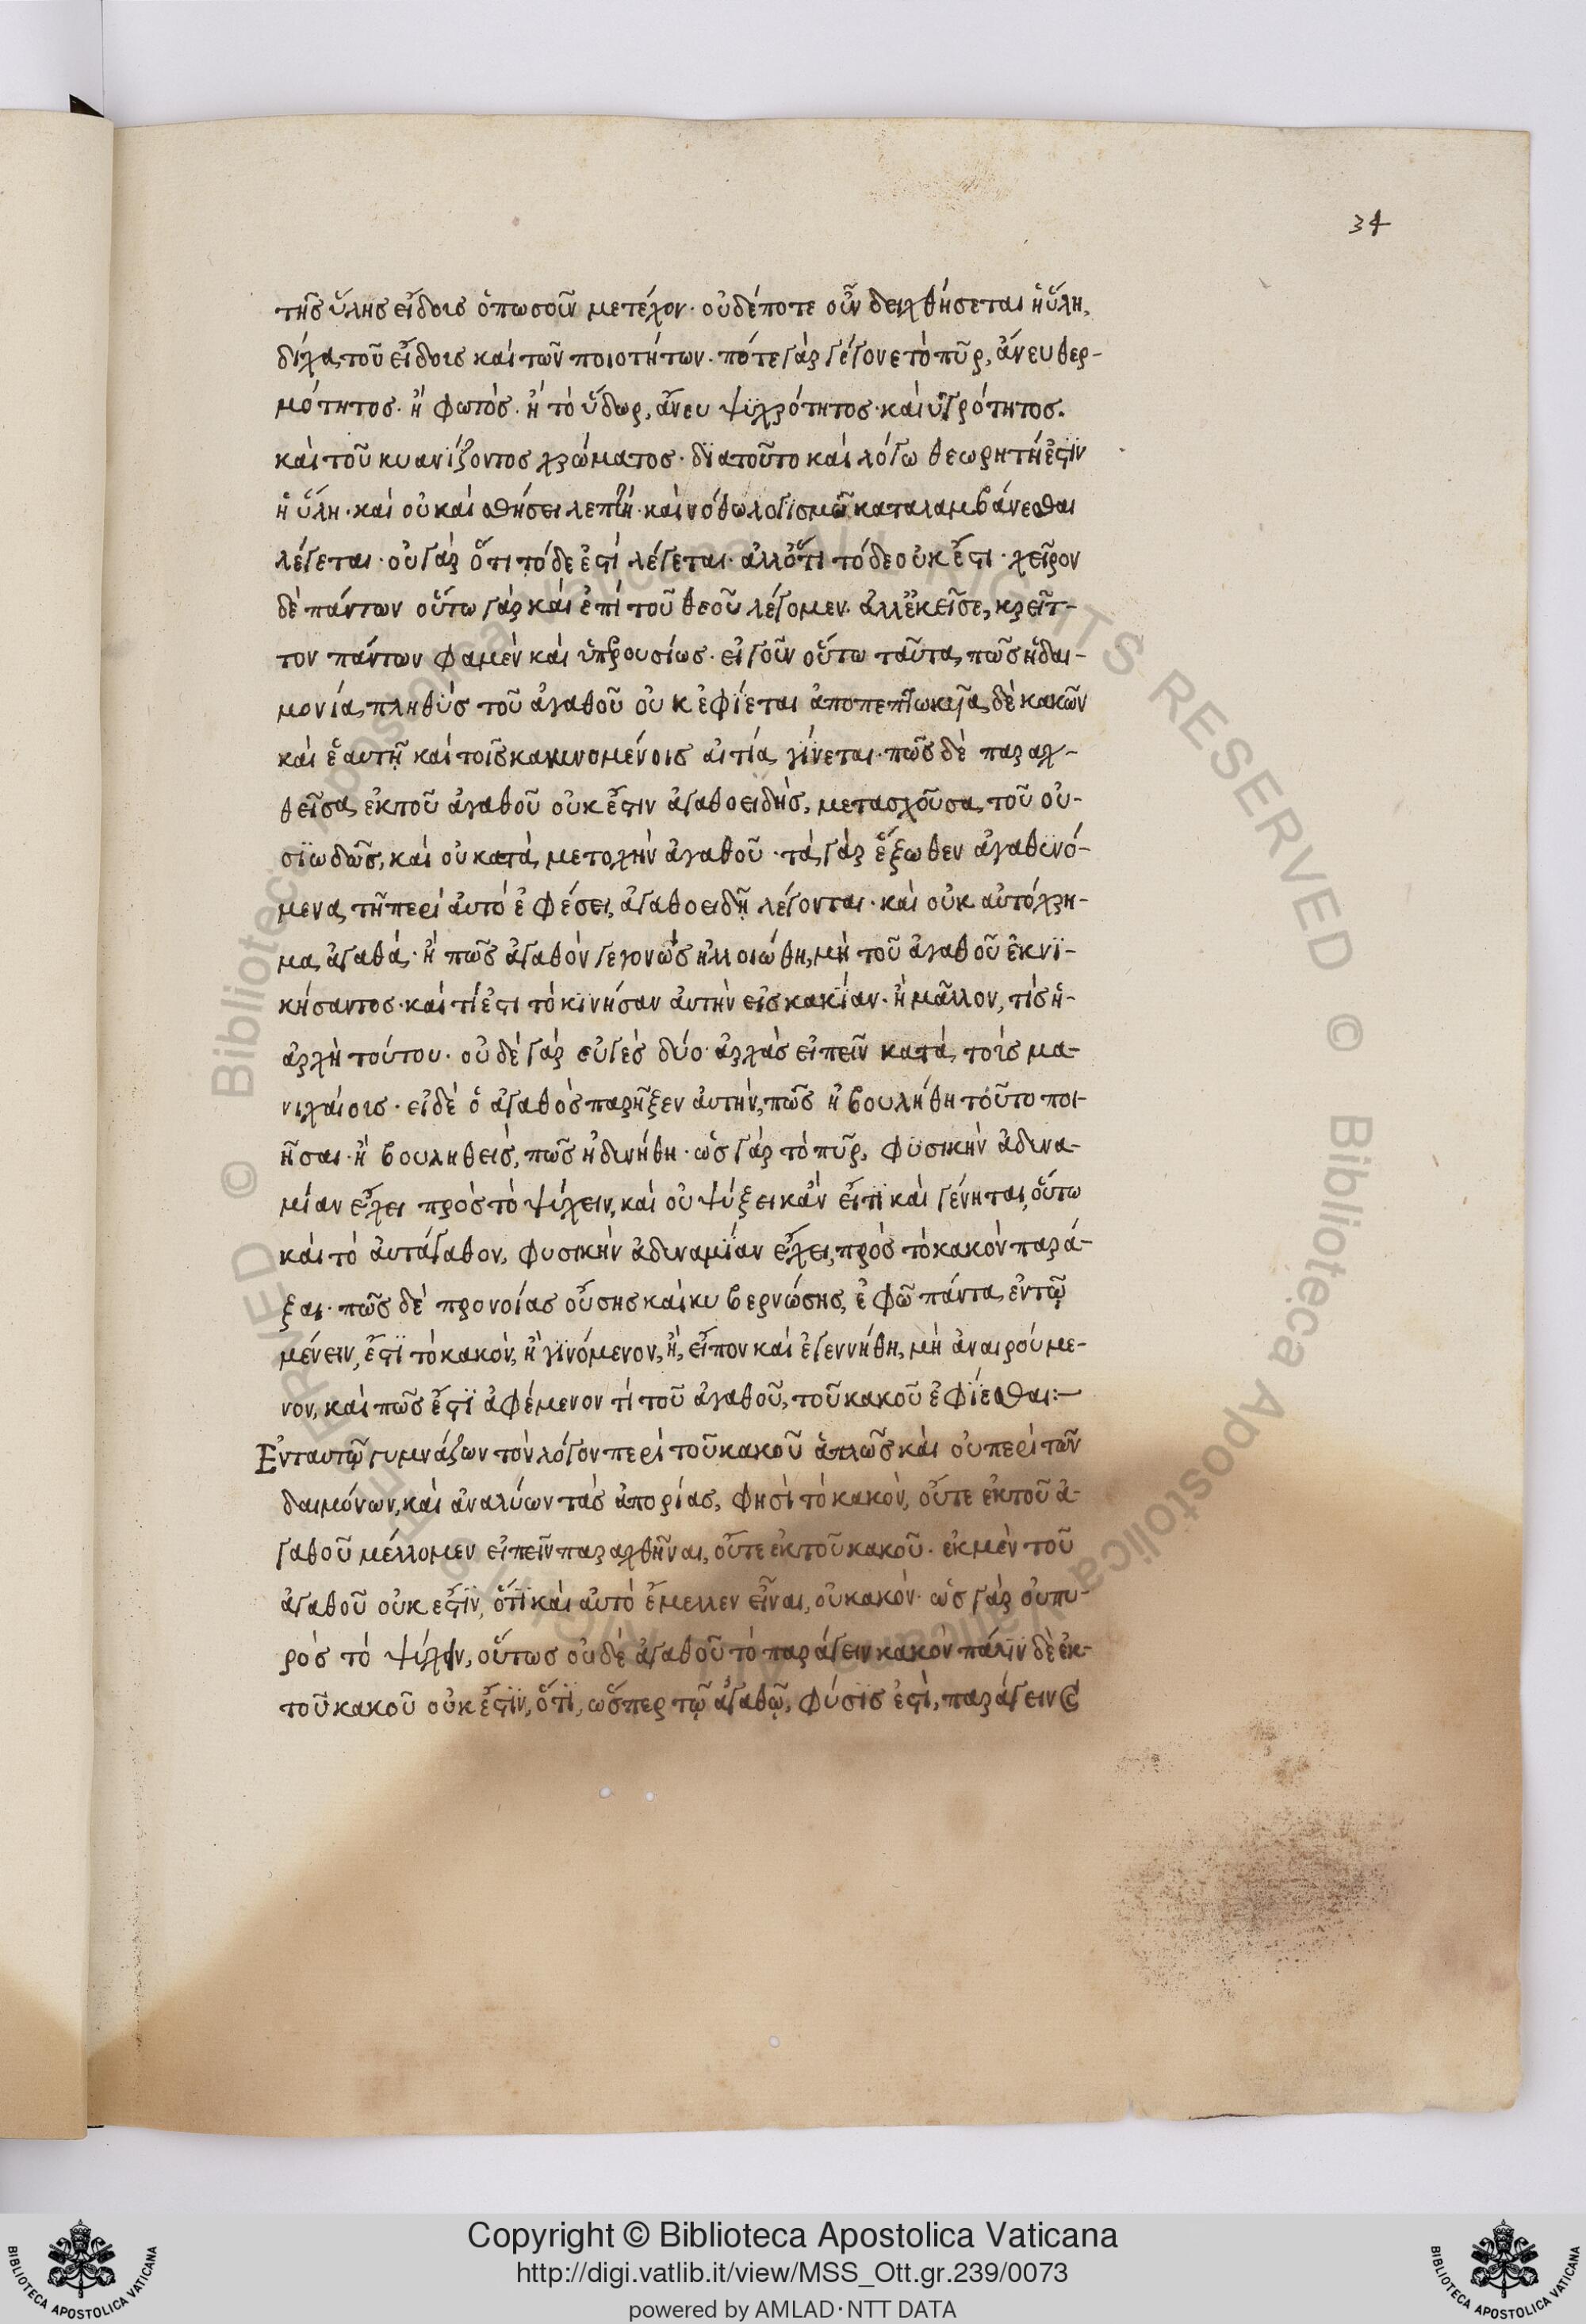 34
τῆς ὕλης εἴδους ὁπωσοῦν μετέχον· οὐδέποτε οὖν δειχθήσεται ἡ ὕλη,
δίχα τοῦ εἴδους καὶ τῶν ποιοτήτων· πότε γὰρ γέγονε τὸ πῦρ, ἄνευ θερ-
μότητος· ἢ φωτὸς· ἢ τὸ ὕδωρ, ἄνευ ψυχρότητος· καὶ ὑγρότητος.
καὶ τοῦ κυανίζοντος χρώματος· διατοῦτο καὶ λόγω θεωρητή ἐστιν
ἡ ὕλη· καὶ οὐκ αἰσθήσει ληπτή· καὶ νόθω λογισμῶ καταλαμβάνεσθαι
λέγεται· οὐ γὰρ ὅτι τόδε ἐστὶ λέγεται· ἀλλ' ὅτι τόδε οὐκ ἔστι· χεῖρον
δὲ πάντων οὕτω γὰρ καὶ ἐπὶ τοῦ θεοῦ λέγομεν· ἀλλ' ἐκεῖσε, κρεῖτ-
τον πάντων φαμὲν καὶ ὑπερουσίως· εἰ γοῦν οὕτω ταῦτα, πῶς ἡ δαι-
μονία πληθὺς τοῦ ἀγαθοῦ οὐκ ἐφίεται ἀποπεπτωκυῖα δὲ κακῶν
καὶ ἑαυτῇ καὶ τοῖς κακυνομένοις αἰτία γίνεται· πῶς δὲ παραχ-
θεῖσα ἐκ τοῦ ἀγαθοῦ οὐκ ἔστιν ἀγαθοειδὴς, μετασχοῦσα τοῦ οὐ-
σιωδῶς, καὶ οὐ κατὰ μετοχὴν ἀγαθοῦ· τὰ γὰρ ἔξωθεν ἀγαθυνό-
μενα τῆ περὶ αὐτὸ ἐφέσει, ἀγαθοειδῆ λέγονται· καὶ οὐκ αὐτόχρη-
μα ἀγαθά· ἢ πῶς ἀγαθὸν γεγονὼς ἠλλοιώθη, μὴ τοῦ ἀγαθοῦ ἐκνι-
κήσαντος· καὶ τί ἐστι τὸ κινῆσαν αὐτὴν εἰς κακίαν· ἢ μᾶλλον, τίς ἡ
ἀρχὴ τούτου· οὐδὲ γὰρ εὐγὲς δύο ἀρχὰς εἰπεῖν κατὰ τοὺς μα-
νιχαίους· εἰ δὲ ὁ ἀγαθὸς παρῆξεν αὐτὴν, πῶς ἠβουλήθη τοῦτο ποι-
ῆσαι· ἢ βουληθεὶς, πῶς ἠδυνήθη· ὡς γὰρ τὸ πῦρ, φυσικὴν ἀδυνα-
μίαν ἔχει πρὸς τὸ ψύχειν, καὶ οὐ ψύξει κἂν εἴτι καὶ γένηται, οὕτω
καὶ τὸ αὐτάγαθον, φυσικὴν ἀδυναμίαν ἔχει, πρὸς τὸ κακὸν παρά-
ξαι· πῶς δὲ προνοίας οὔσης καὶ κυβερνώσης, ἐφῶ πάντα ἐν τῷ
μένειν, ἔστι τὸ κακὸν, ἢ γινόμενον, ἢ, εἶπον καὶ ἐγεννήθη, μὴ ἀναιρούμε-
νον, καὶ πῶς ἔστι ἀφέμενον τί τοῦ ἀγαθοῦ, τοῦ κακοῦ ἐφίεσθαι:—
Ἐνταυτῷ γυμνάζων τὸν λόγον περὶ τοῦ κακοῦ ἁπλῶς καὶ οὐ περὶ τῶν
δαιμόνων, καὶ ἀναλύων τὰς ἀπορίας, φησὶ τὸ κακὸν, οὔτε ἐκ τοῦ ἀ-
γαθοῦ μέλλομεν εἰπεῖν παραχθῆναι, οὔτε ἐκ τοῦ κακοῦ· ἐκ μὲν τοῦ
ἀγαθοῦ οὐκ ἐστὶν, ὅτι καὶ αὐτὸ ἔμελλεν εἶναι, οὐ κακόν· ὡς γὰρ οὐ πυ-
ρὸς τὸ ψύχειν, οὕτως οὐδὲ ἀγαθοῦ τὸ παράγειν κακὸν πάλιν δὲ ἐκ
τοῦ κακοῦ οὐκ ἔστιν, ὅτι, ὥσπερ τῷ ἀγαθῷ, φύσις ἐστὶ, παράγειν
© Biblioteca Apostolica Vaticana ALL RIGHTS RESERVED © Biblioteca Apostolica Vaticana ALL RIGHTS RESERVED
Copyright © Biblioteca Apostolica Vaticana
http://digi.vatlib.it/view/MSS_Ott.gr.239/0073
powered by AMLAD·NTT DATA
BIBLIOTECA APOSTOLICA VATICANA
BIBLIOTECA APOSTOLICA VATICANA